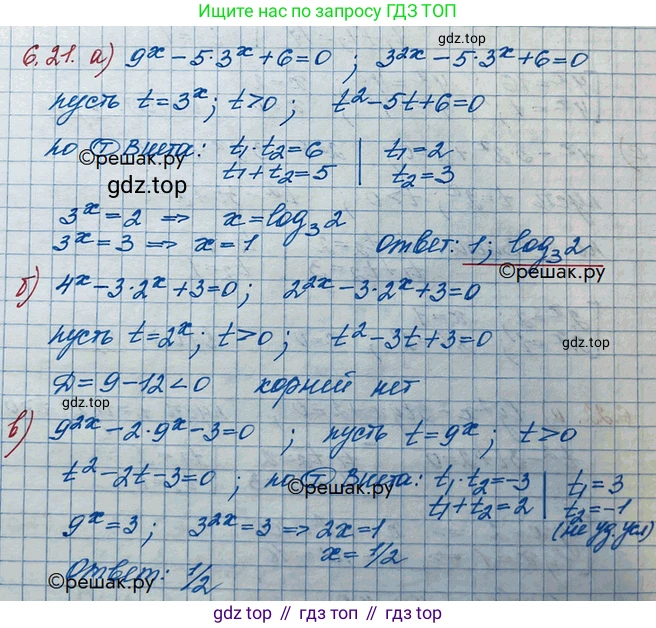 Ищите нас по запросу ГДЗ ТОП
6.21. а) 9^x - 5·3^x + 6 = 0 ; 3^{2x} - 5·3^x + 6 = 0
gdz.top
пусть t = 3^x ; t > 0 ; t^2 - 5t + 6 = 0
по Т Виета: t_1 · t_2 = 6 | t_1 = 2
©решак.ру
t_1 + t_2 = 5 | t_2 = 3
gdz.top
3^x = 2 => x = log_3 2
3^x = 3 => x = 1 ответ: 1; log_3 2
©решак.ру
б) 4^x - 3·2^x + 3 = 0 ; 2^{2x} - 3·2^x + 3 = 0
пусть t = 2^x ; t > 0 ; t^2 - 3t + 3 = 0
gdz.top
Д = 9 - 12 < 0 корней нет
gdz.top
в) 9^{2x} - 2·9^x - 3 = 0 ; пусть t = 9^x ; t > 0
t^2 - 2t - 3 = 0 ; по Т Виета: t_1 · t_2 = -3 | t_1 = 3
©решак.ру
t_1 + t_2 = 2 | t_2 = -1
9^x = 3 ; 3^{2x} = 3 => 2x = 1 (не уд. усл)
x = 1/2
Ответ: 1/2
©решак.ру
gdz.top
gdz top // гдз топ // gdz.top